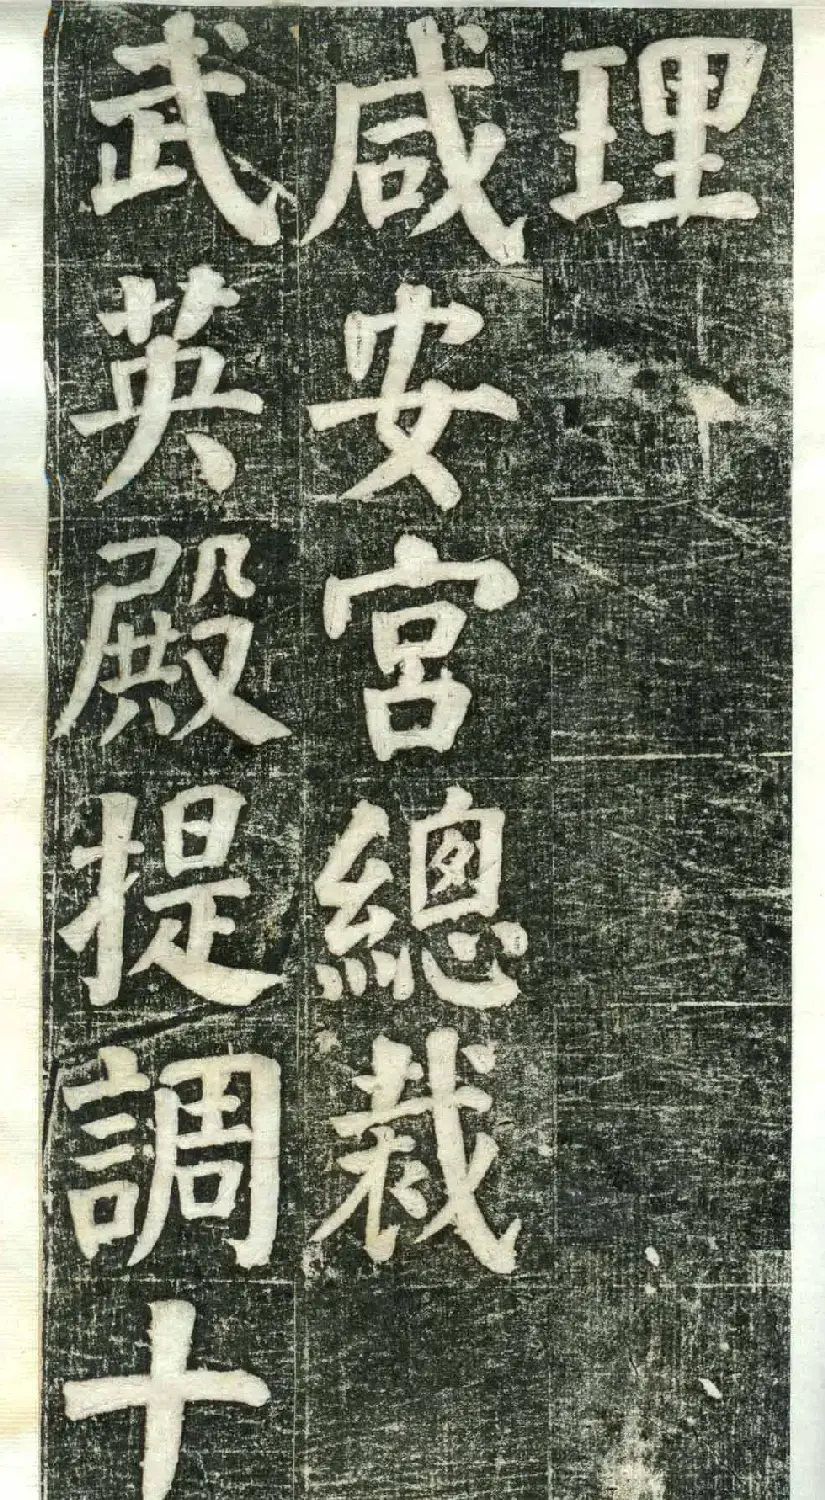 理
咸安宮總裁
武英殿提調十